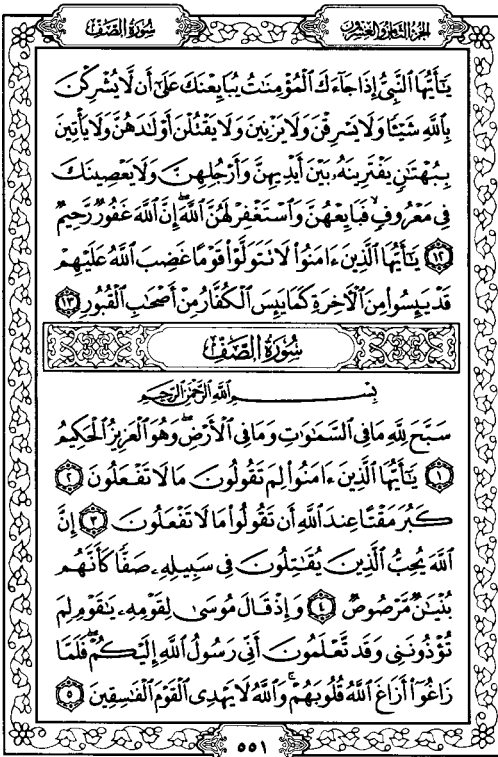 الجزء الثامن والعشرون
سُورَةُ الصَّفِّ
يَـٰٓأَيُّهَا ٱلنَّبِىُّ إِذَا جَآءَكَ ٱلْمُؤْمِنَـٰتُ يُبَايِعْنَكَ عَلَىٰٓ أَن لَّا يُشْرِكْنَ
بِٱللَّهِ شَيْـًٔا وَلَا يَسْرِقْنَ وَلَا يَزْنِينَ وَلَا يَقْتُلْنَ أَوْلَـٰدَهُنَّ وَلَا يَأْتِينَ
بِبُهْتَـٰنٍ يَفْتَرِينَهُۥ بَيْنَ أَيْدِيهِنَّ وَأَرْجُلِهِنَّ وَلَا يَعْصِينَكَ
فِى مَعْرُوفٍ ۙ فَبَايِعْهُنَّ وَٱسْتَغْفِرْ لَهُنَّ ٱللَّهَ ۖ إِنَّ ٱللَّهَ غَفُورٌ رَّحِيمٌ
١٢ يَـٰٓأَيُّهَا ٱلَّذِينَ ءَامَنُوا۟ لَا تَتَوَلَّوْا۟ قَوْمًا غَضِبَ ٱللَّهُ عَلَيْهِمْ
قَدْ يَئِسُوا۟ مِنَ ٱلْـَٔاخِرَةِ كَمَا يَئِسَ ٱلْكُفَّارُ مِنْ أَصْحَـٰبِ ٱلْقُبُورِ ١٣
سُورَةُ الصَّفِّ
بِسْمِ ٱللَّهِ ٱلرَّحْمَـٰنِ ٱلرَّحِيمِ
سَبَّحَ لِلَّهِ مَا فِى ٱلسَّمَـٰوَٰتِ وَمَا فِى ٱلْأَرْضِ ۖ وَهُوَ ٱلْعَزِيزُ ٱلْحَكِيمُ
١ يَـٰٓأَيُّهَا ٱلَّذِينَ ءَامَنُوا۟ لِمَ تَقُولُونَ مَا لَا تَفْعَلُونَ ٢
كَبُرَ مَقْتًا عِندَ ٱللَّهِ أَن تَقُولُوا۟ مَا لَا تَفْعَلُونَ ٣ إِنَّ
ٱللَّهَ يُحِبُّ ٱلَّذِينَ يُقَـٰتِلُونَ فِى سَبِيلِهِۦ صَفًّا كَأَنَّهُم
بُنْيَـٰنٌ مَّرْصُوصٌ ٤ وَإِذْ قَالَ مُوسَىٰ لِقَوْمِهِۦ يَـٰقَوْمِ لِمَ
تُؤْذُونَنِى وَقَد تَّعْلَمُونَ أَنِّى رَسُولُ ٱللَّهِ إِلَيْكُمْ ۖ فَلَمَّا
زَاغُوٓا۟ أَزَاغَ ٱللَّهُ قُلُوبَهُمْ ۚ وَٱللَّهُ لَا يَهْدِى ٱلْقَوْمَ ٱلْفَـٰسِقِينَ ٥
٥٥١